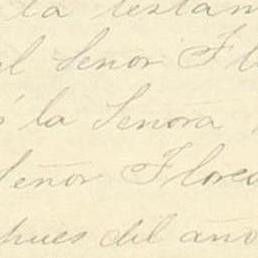 la testam
el Señor Fl
a la Señora
Señor Flore
spues del año